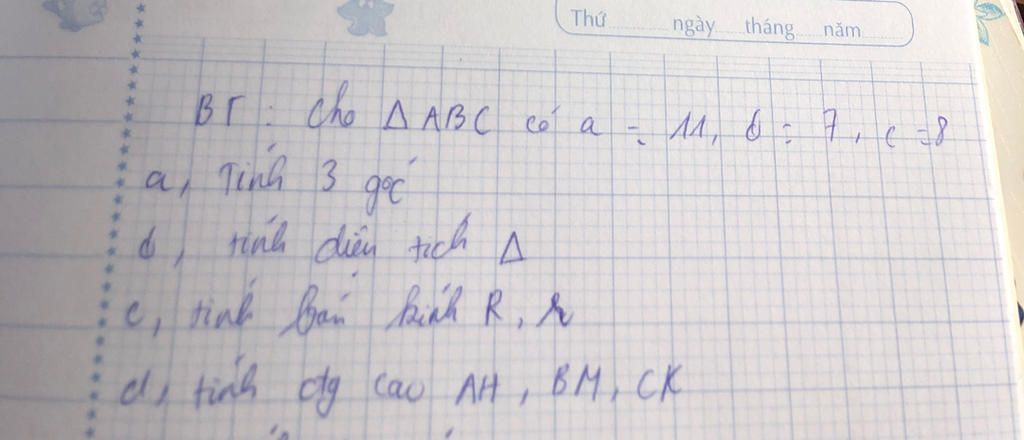 Thứ ngày tháng năm
BT: Cho Δ ABC có a = 11, b = 7, c = 8
a, Tính 3 góc
b, tính diện tích Δ
c, tính bán kính R, r
d, tính đg cao AH, BM, CK